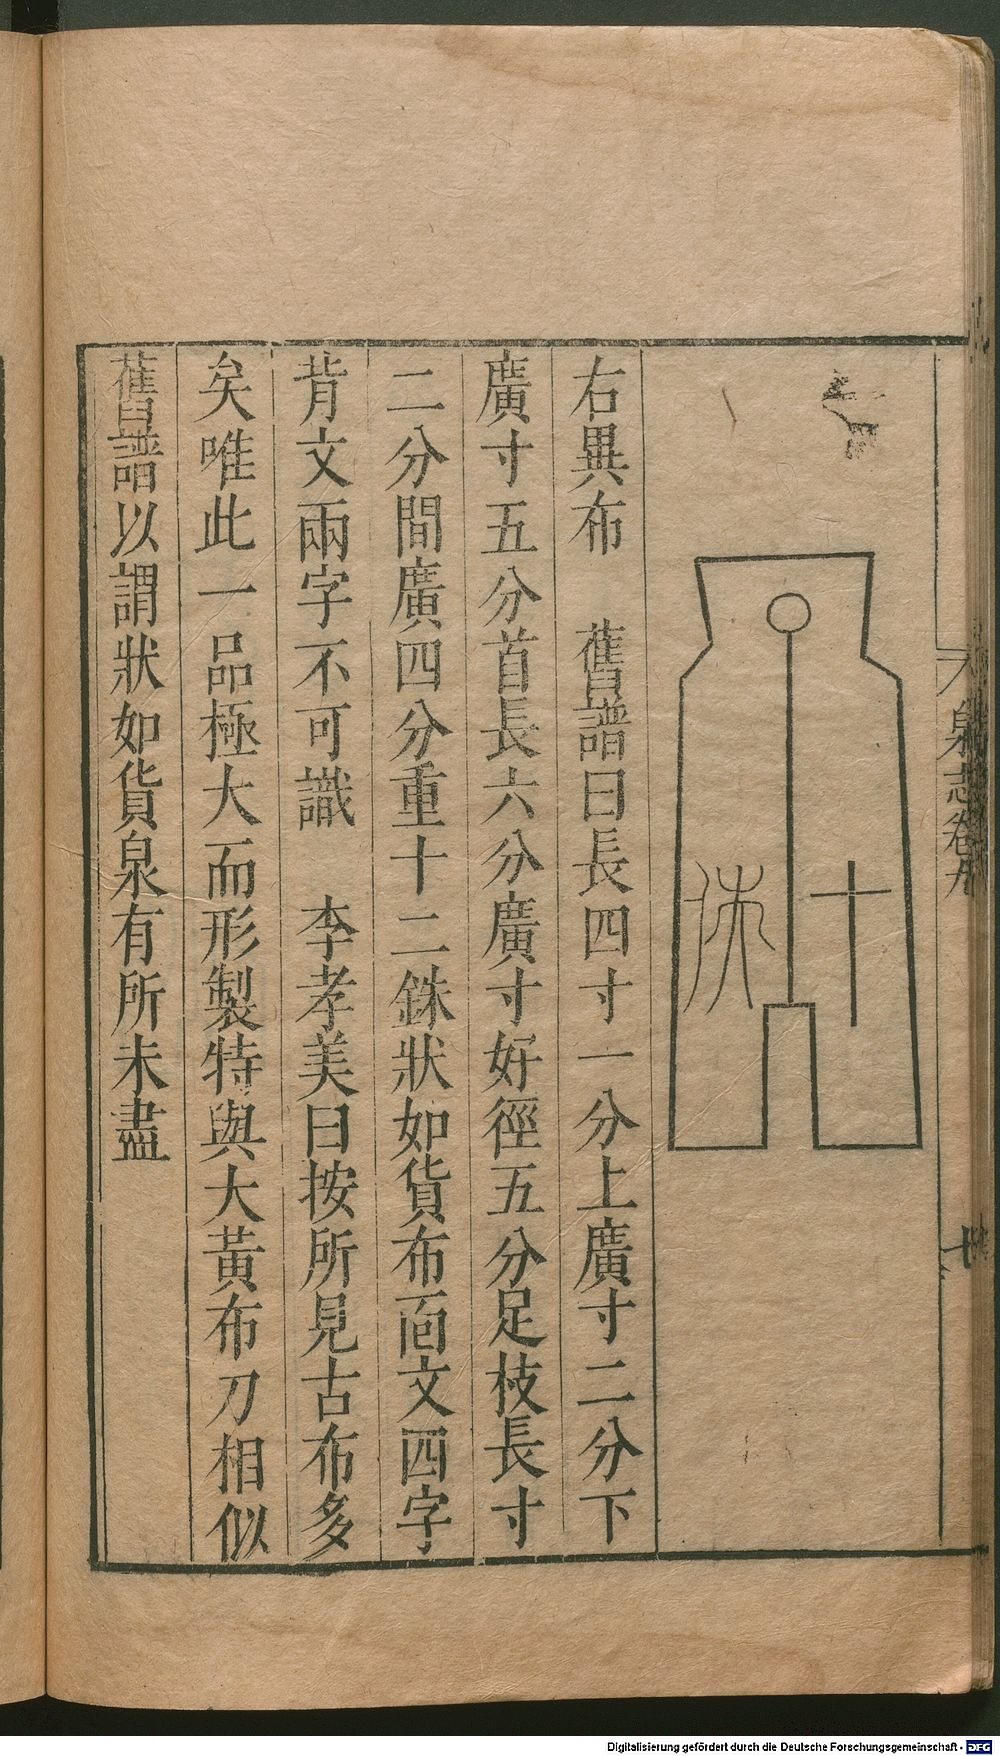 泉志卷九
十
右異布　舊譜曰長四寸一分上廣寸二分下
廣寸五分首長六分廣寸好徑五分足枝長寸
二分間廣四分重十二銖狀如貨布面文四字
背文兩字不可識　李孝美曰按所見古布多
矣唯此一品極大而形製特與大黃布刀相似
舊譜以謂狀如貨泉有所未盡
Digitalisierung gefördert durch die Deutsche Forschungsgemeinschaft - DFG